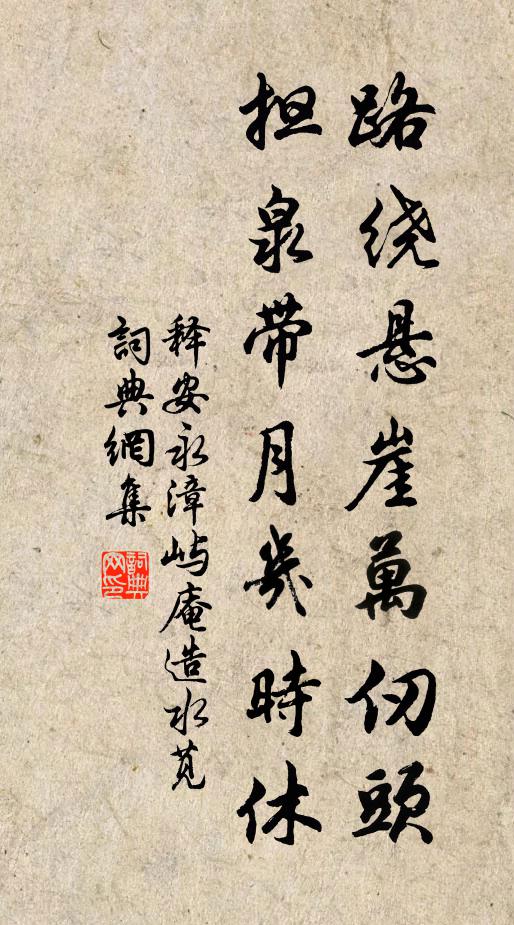 路绕悬崖萬仞頭
担泉带月幾時休
释安永漳屿庵造水笕
詞典網集
詞典網印